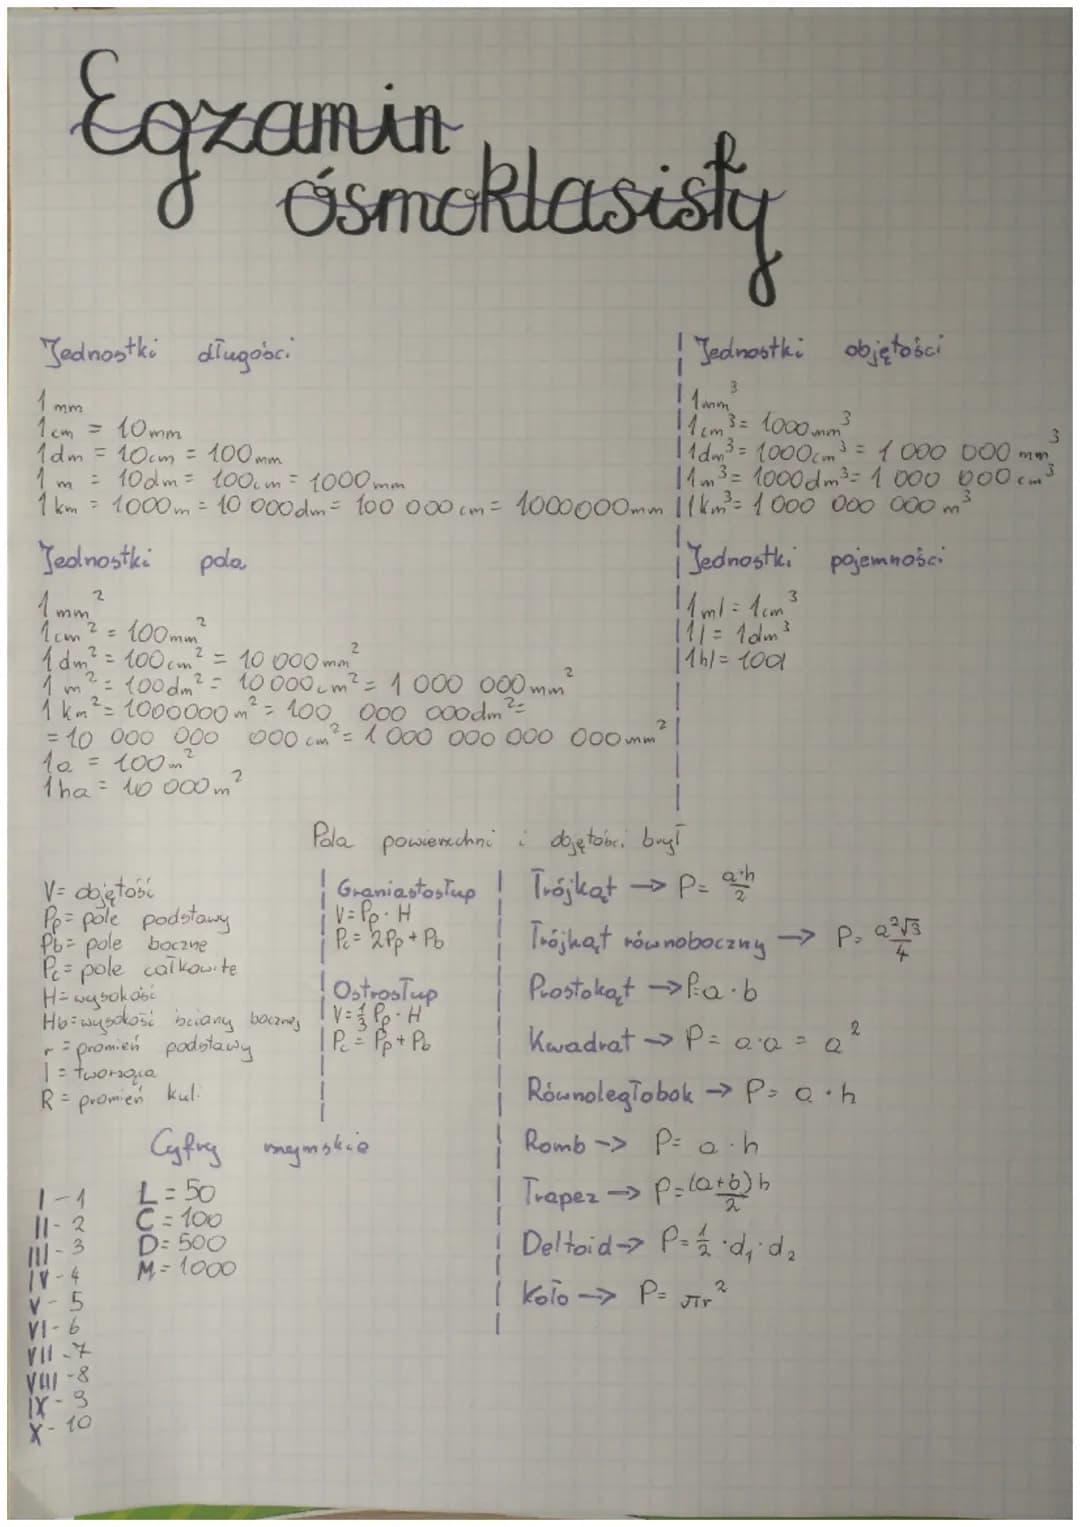 Egzamin
ósmoklasisty
Jednostki długości
1 mm
1 cm = 10 mm
1 dm = 10 cm = 100 mm
1 m = 10 dm = 100 cm = 1000 mm
1 km = 1000 m = 10 000 dm = 100 000 cm = 1000000 mm
Jednostki objętości
1 mm³
1 cm³ = 1000 mm³
1 dm³ = 1000 cm³ = 1 000 000 mm³
1 m³ = 1000 dm³ = 1 000 000 cm³
1 km³ = 1 000 000 000 m³
Jednostki pola
1 mm²
1 cm² = 100 mm²
1 dm² = 100 cm² = 10 000 mm²
1 m² = 100 dm² = 10 000 cm² = 1 000 000 mm²
1 km² = 1000000 m² = 100 000 000 dm² =
= 10 000 000 000 cm² = 1 000 000 000 000 mm²
1a = 100 m²
1ha = 10 000 m²
Jednostki pojemności
1 ml = 1 cm³
1 l = 1 dm³
1 hl = 100l
Pola powierzchni i objętości brył
V = objętość
Pp = pole podstawy
Pb = pole boczne
Pc = pole całkowite
H = wysokość
Hb = wysokość ściany bocznej
r = promień podstawy
l = tworząca
R = promień kuli
Graniastosłup
V = Pp · H
Pc = 2Pp + Pb
Ostrosłup
V = 1/3 Pp · H
Pc = Pp + Pb
Trójkąt → P = a·h/2
Trójkąt równoboczny → P = a²√3/4
Prostokąt → P = a · b
Kwadrat → P = a·a = a²
Równoległobok → P = a · h
Romb → P = a · h
Trapez → P = (a+b)h/2
Deltoid → P = 1/2 · d₁ · d₂
Koło → P = πr²
Cyfry rzymskie
I - 1
II - 2
III - 3
IV - 4
V - 5
VI - 6
VII - 7
VIII - 8
IX - 9
X - 10
L = 50
C = 100
D = 500
M = 1000